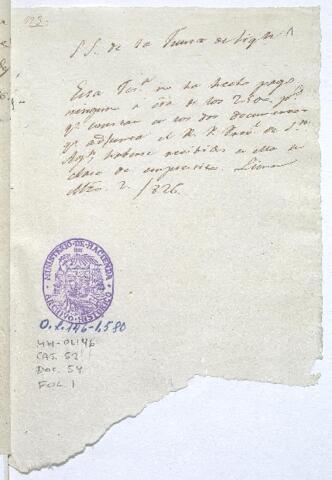 123
S.S. de la
Esta Tes.ª no ha hecho pago
ninguno á cta de los 230 p.s
q.e constan en los dos documentos
q.e adjunta el R. P.
haberse recibidos en ella en
clase de emprestito. Lima
Mzo. 2. /826.
MINISTERIO-DE-HACIENDA
ARCHIVO-HISTORICO
O.L.146-1580
MH-OL146
CAJ. 52
DOC. 54
FOL. 1